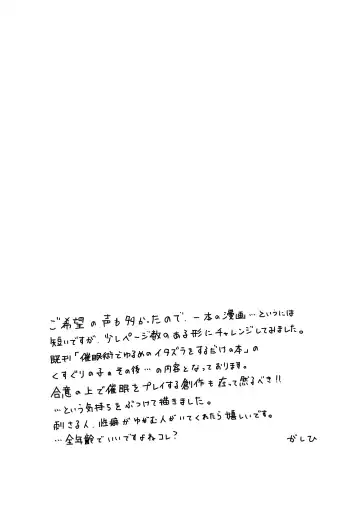 ご希望の声も多かったので、一本の漫画…というには
短いですが、少しページ数のある形にチャレンジしてみました。
既刊「催眠術でゆるめのイタズラをするだけの本」の
くすぐりの子。その後…の内容となっております。
合意の上で催眠をプレイする創作も在って然るべき!!
…という気持ちをぶつけて描きました。
刺さる人、性癖がゆがむ人がいてくれたら嬉しいです。
…全年齢でいいですよねコレ?
がしひ